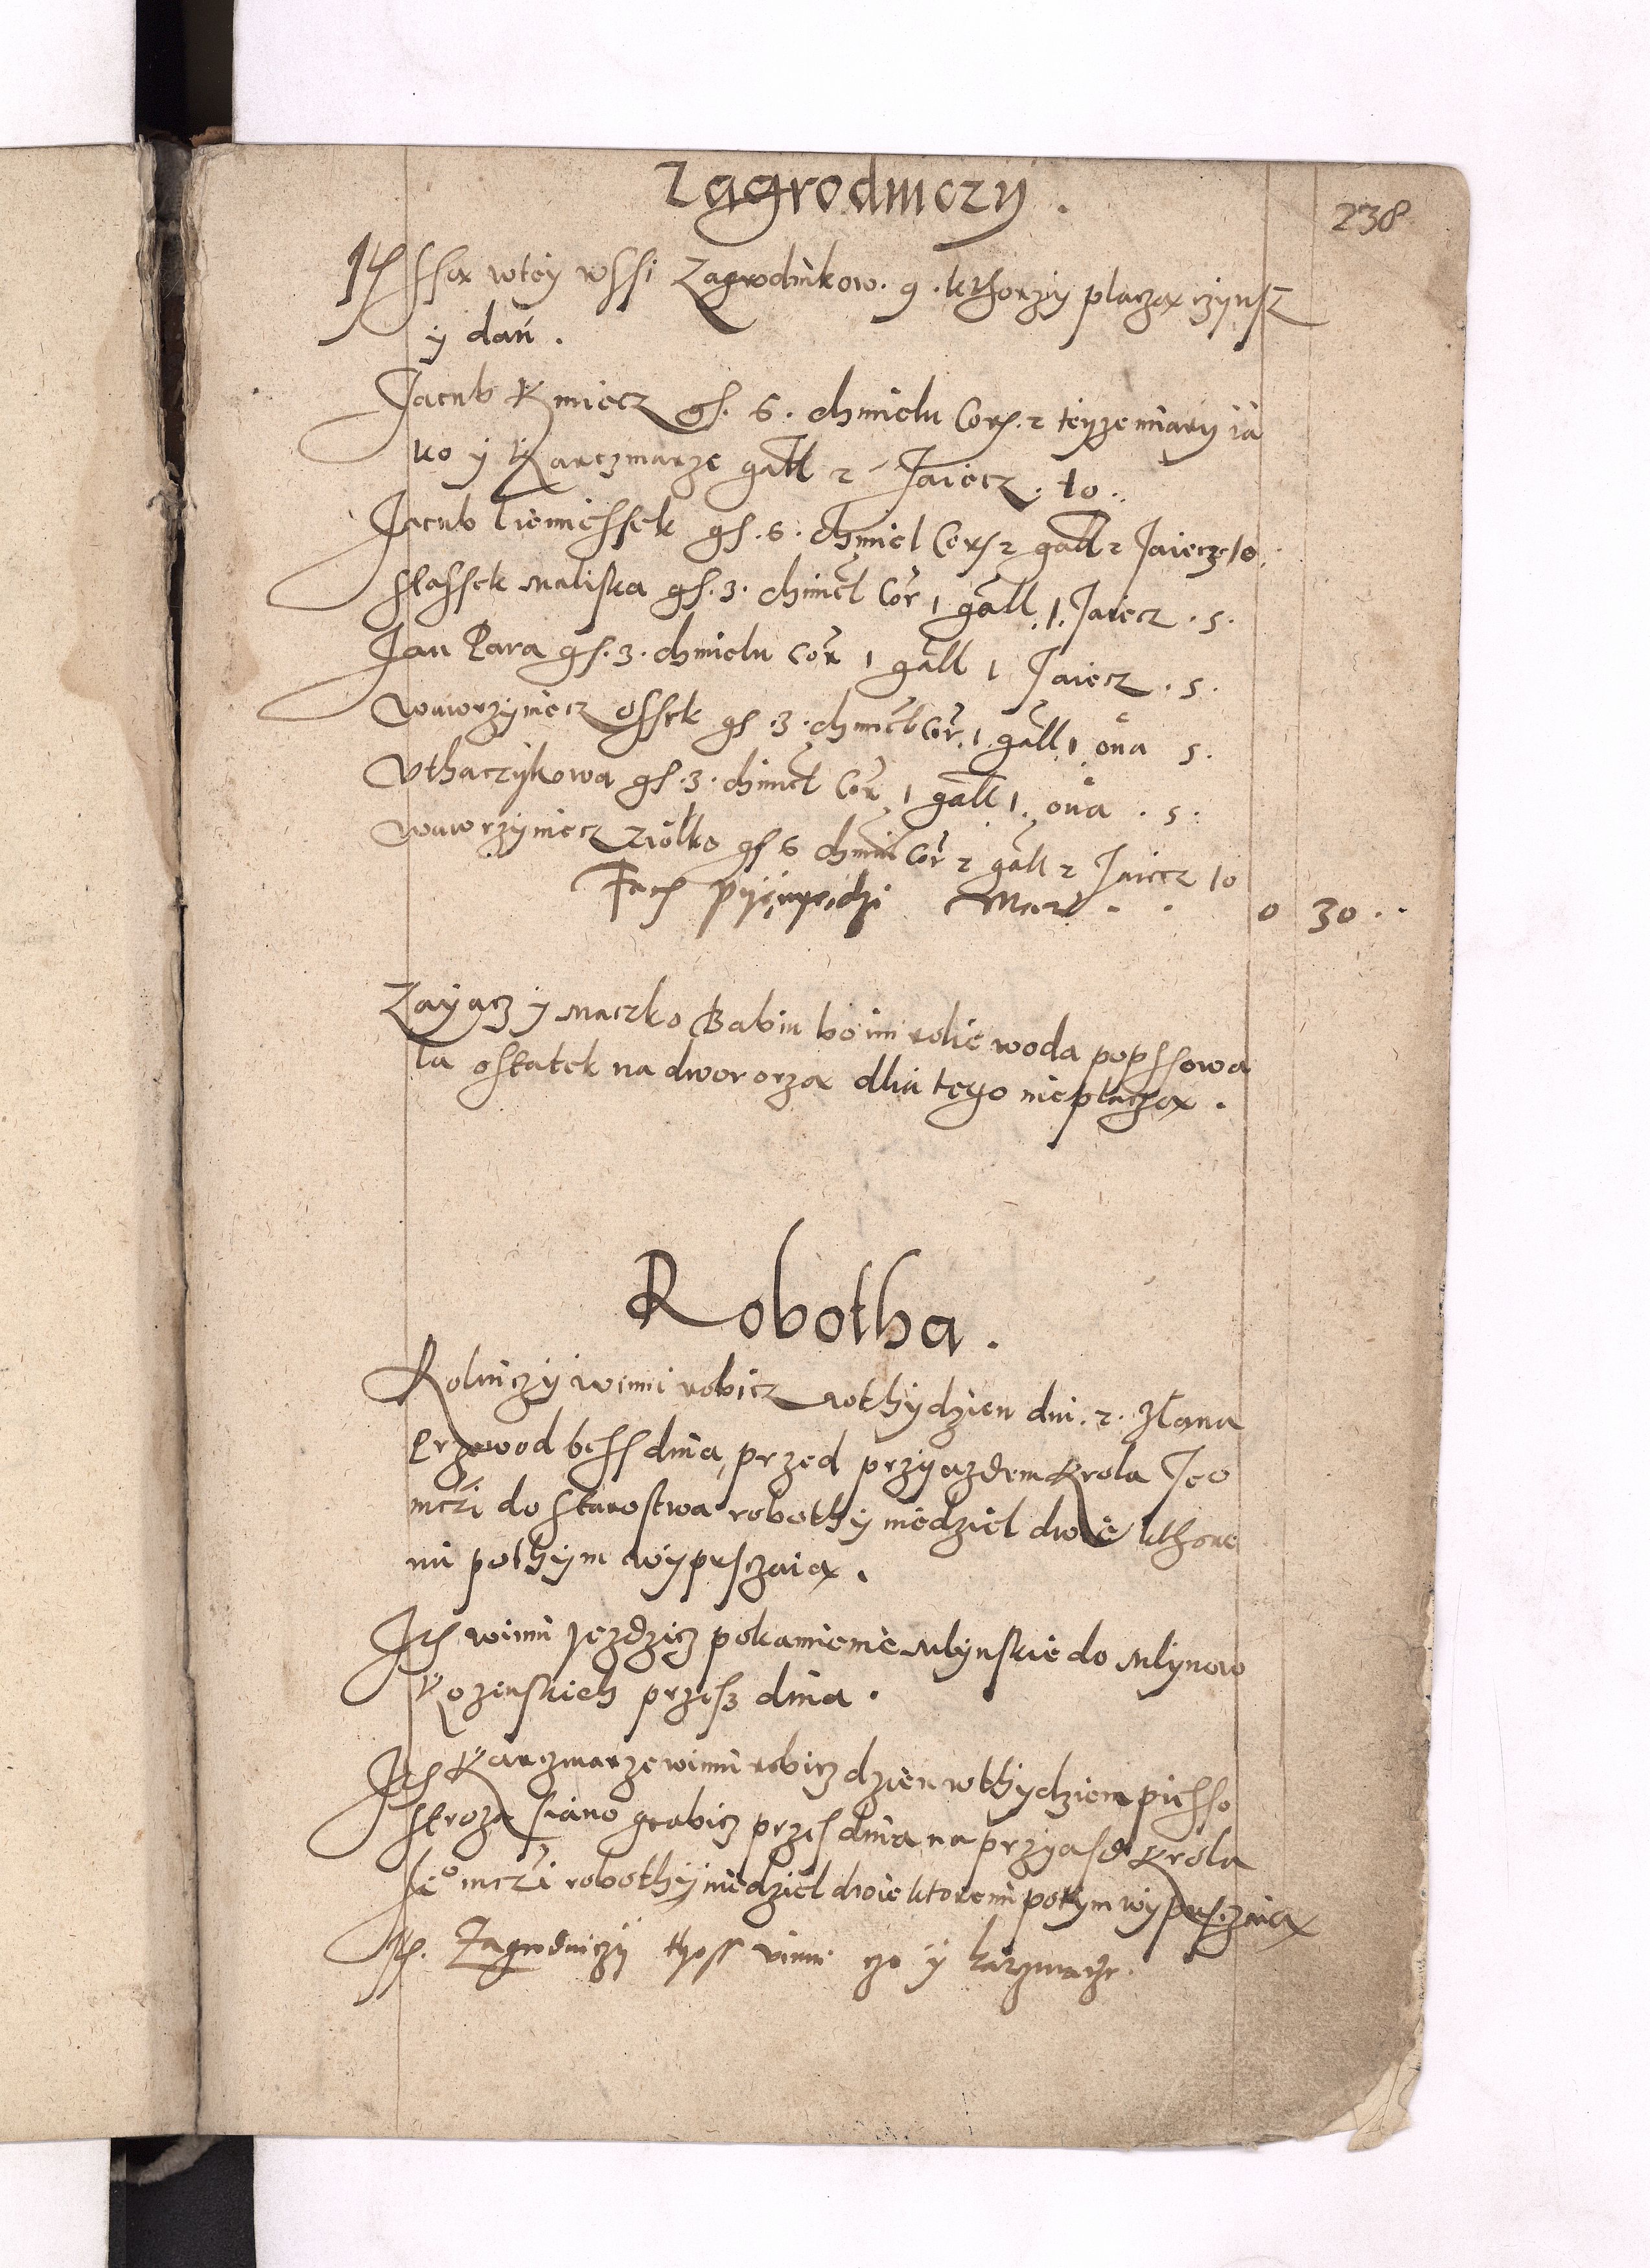 Zagrodniczy.
238
It ssą wtey wssi Zagrodnikow. 9. kthorzy placzą czynsz
y dań.
Jacub Kmiecz gs. 6. chmielu Cor. 2 teyze miary ia
ko y Karczmarze gall 2 Jaiecz. 10..
Jacub Tiemiessek gs. 6. chmiel Cor 2 gall 2 Jaiecz 10.
Stassek Maliska gs. 3. chmiel Cor 1 gall. 1. Jaiecz. 5.
Jan Para gs. 3. chmielu Cor 1 gall 1 Jaiecz. 5.
Wawrzyniecz Ossek gs. 3. chmiel Cor. 1. gall 1 oua 5.
Vthaczykowa gs. 3. chmiel Cor 1 gall 1. oua. 5.
Wawrzyniecz Ziolko gs 6 chmiel Cor 2 gall 2 Jaiecz 10
Facit 0 30..
Zayacz y Maczko Babin bo im rolie woda popssowa
la ostatek na dwor orzą dlia tego nie placzą.
Robotha.
Rolniczy winni robicz wothydzien dni. 2. Zlana
Przewod bess dnia, przed przyazdem Krola Jeo
mczi do starostwa robothy niedziel dwie kthore
mi pothym wypusczaią.
It winni Jezdzicz pokamienie Mlynskie do Mlynow
Kozinskich przesz dnia.
It Karczmarze winni robicz dzien wthydzien piesso
stroza siano grabicz przes dnia na przyasd Krola
Je° mczi robothy niedziel dwie ktoremi potym wypusczaią
It. Zagrodniczy thoss vinni czo y karczmarze.